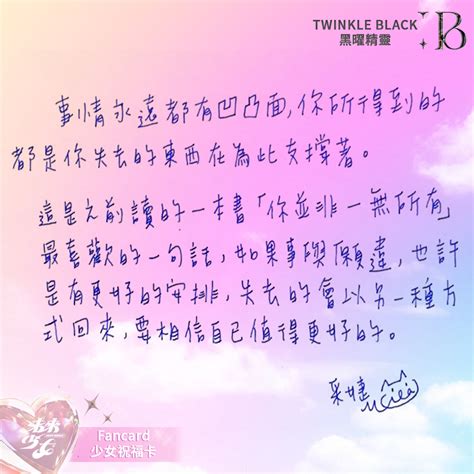 TWINKLE BLACK
黑曜精靈
B
事情永遠都有凹凸面,你所得到的
都是你失去的東西在為此支撐著。
這是之前讀的一本書「你並非一無所有」
最喜歡的一句話,如果事與願違,也許
是有更好的安排,失去的會以另一種方
式回來,要相信自己值得更好的。
采婕
Fancard
少女祝福卡